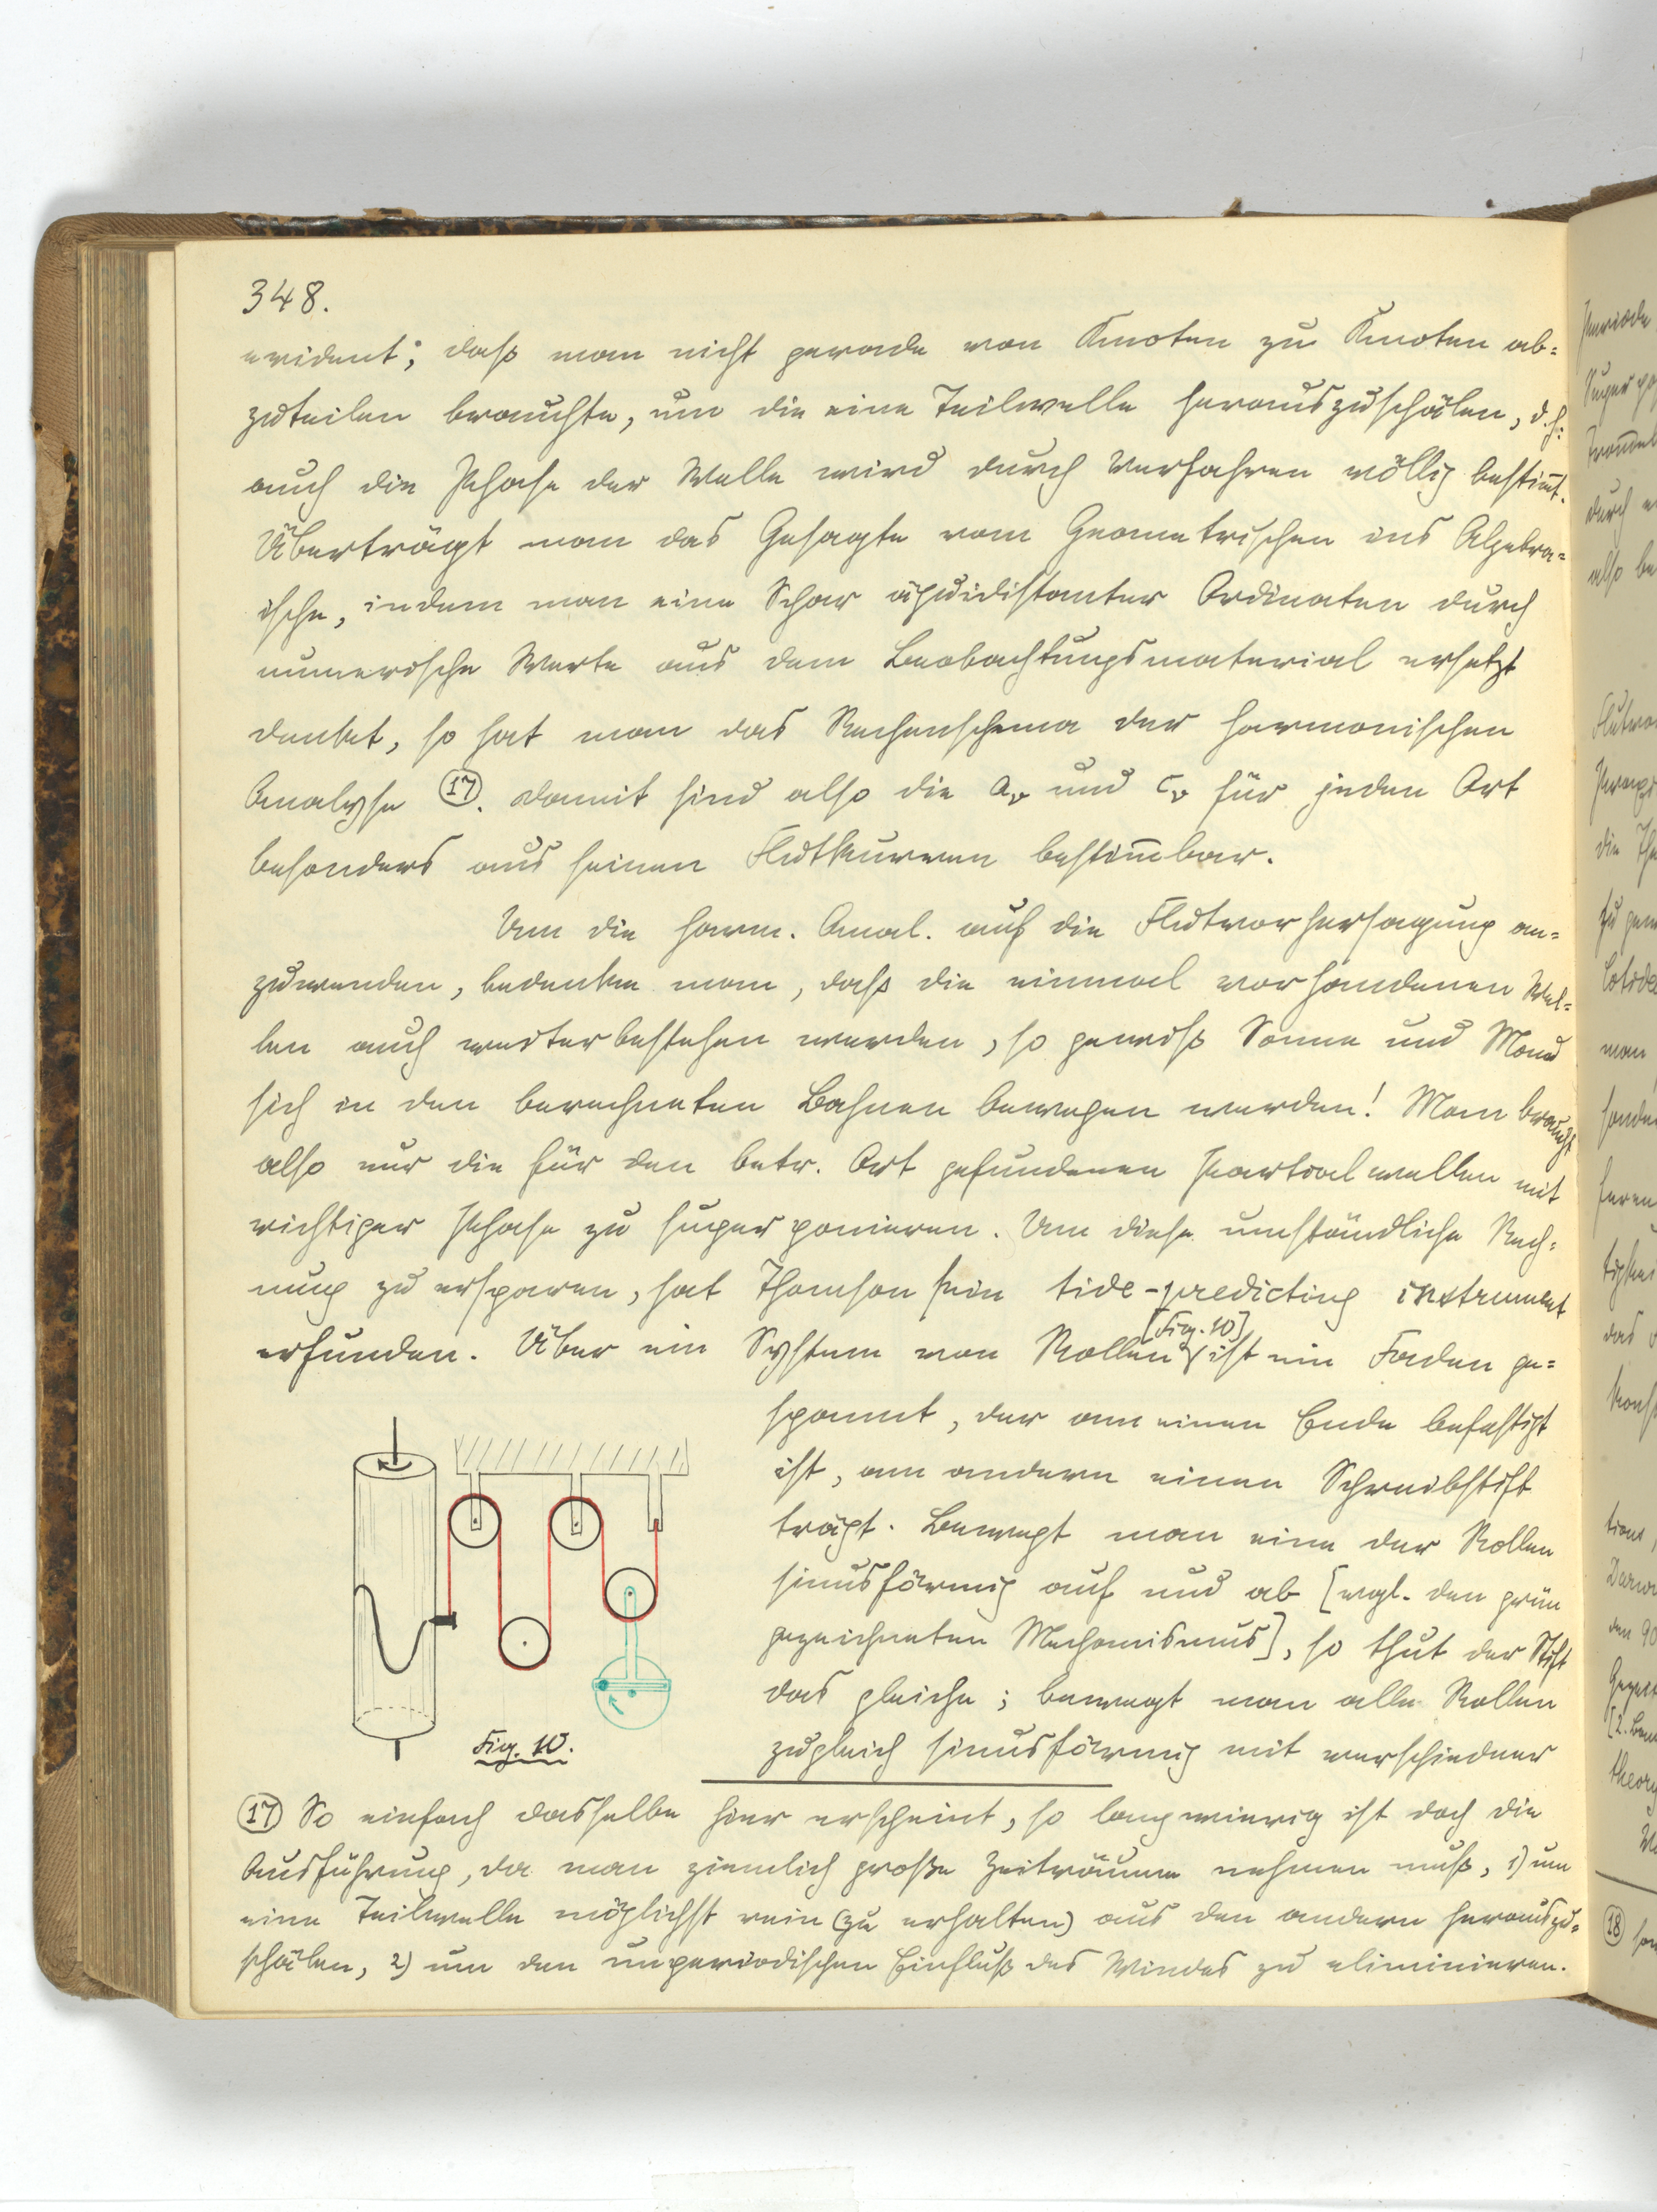 348.
evident; daß man nicht gerade von Knoten zu Knoten ab=
zuteilen brauchte, um die eine Teilwelle herauszuschälen, d.h:
auch die Phase der Welle wird durch Verfahren völlig bestim̅t.
Überträgt man das Gesagte vom Geometrischen ins Algebra=
ische, indem man eine Schar äquidistanter Ordinaten durch
numerische Werte aus dem Beobachtungsmaterial ersetzt
denket, so hat man das Rechenschema der harmonischen
Analyse (17). Damit sind also die aᵥ und cᵥ für jeden Ort
besonders aus seinen Flutkurven bestim̅bar.
Um die harm. Anal. auf die Flutvorhersagung an=
zuwenden, bedenke man, daß die einmal vorhandenen Wel=
len auch weiterbestehen werden, so gewiß Sonne und Mond
sich in den berechneten Bahnen bewegen werden! Man braucht
also nur die für den betr. Ort gefundenen Partialwellen mit
richtiger Phase zu superponieren. Um diese umständliche Rech=
nung zu ersparen, hat Thomson sein tide-predicting instrument
erfunden. Über ein System von Rollen [Fig. 10] ist ein Faden ge=
spannt, der am einen Ende befestigt
ist, am andern einen Schreibstift
trägt. Bewegt man eine der Rollen
sinusförmig auf und ab [vgl. den grün
gezeichneten Mechanismus], so thut der Stift
das gleiche; bewegt man alle Rollen
zugleich sinusförmig mit verschiedner
Fig. 10.
(17) So einfach dasselbe hier erscheint, so langwierig ist doch die
Ausführung, da man ziemlich große Zeiträume nehmen muß, 1) um
eine Teilwelle möglichst rein (zu erhalten) aus den andern herauszu=
schälen, 2) um den unperiodischen Einfluß des Windes zu eliminieren.
Periode
durch
also
man
das
(18)